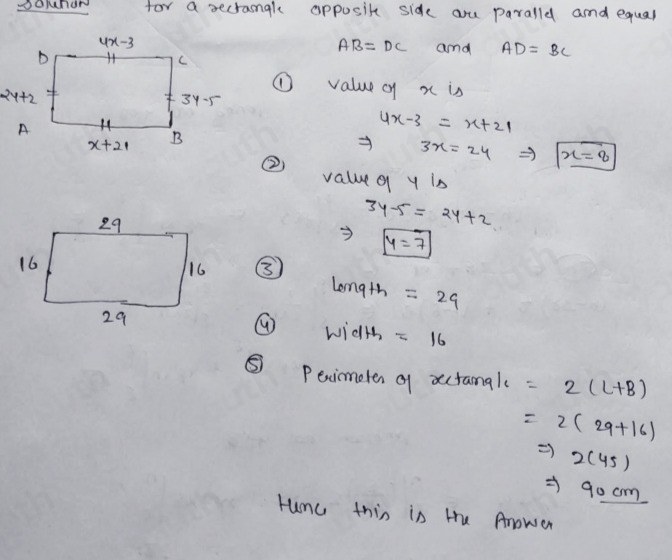 Solution for a rectangle opposite side are parallel and equal
AB = DC and AD = BC
4x-3
D C
2y+2 3y-5
A B
x+21
① value of x is
4x-3 = x+21
⇒ 3x = 24 ⇒ x=8
② value of y is
3y-5 = 2y+2
⇒ y=7
29
16 16
29
③ Length = 29
④ Width = 16
⑤ Perimeter of rectangle = 2(L+B)
= 2(29+16)
⇒ 2(45)
⇒ 90 cm
Hence this is the Answer